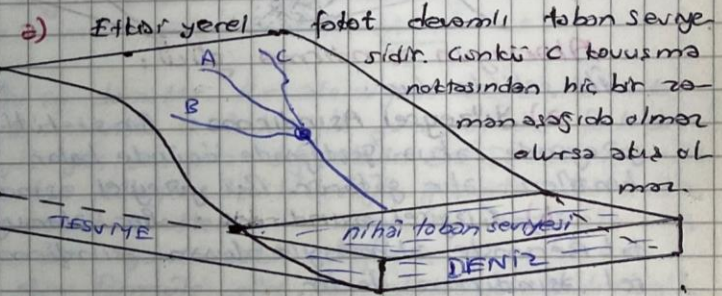 a) Etkisi yerel fakat devamlı taban seviye
sidir. Çünkü C kavuşma
noktasından hiç bir za-
man aşağıda olmaz
olursa akış ol
maz.
A
C
B
TESVİYE
nihai taban seviyesi
DENİZ